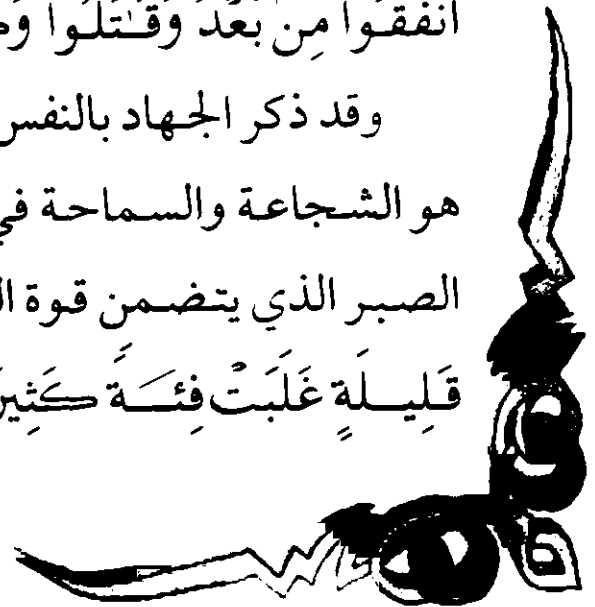 أَنفَقُوا مِن بَعْدُ وَقَٰتَلُوا
وقد ذكر الجهاد بالنفس
هو الشجاعة والسماحة في
الصبر الذي يتضمن قوة
قَلِيلَةٍ غَلَبَتْ فِئَةً